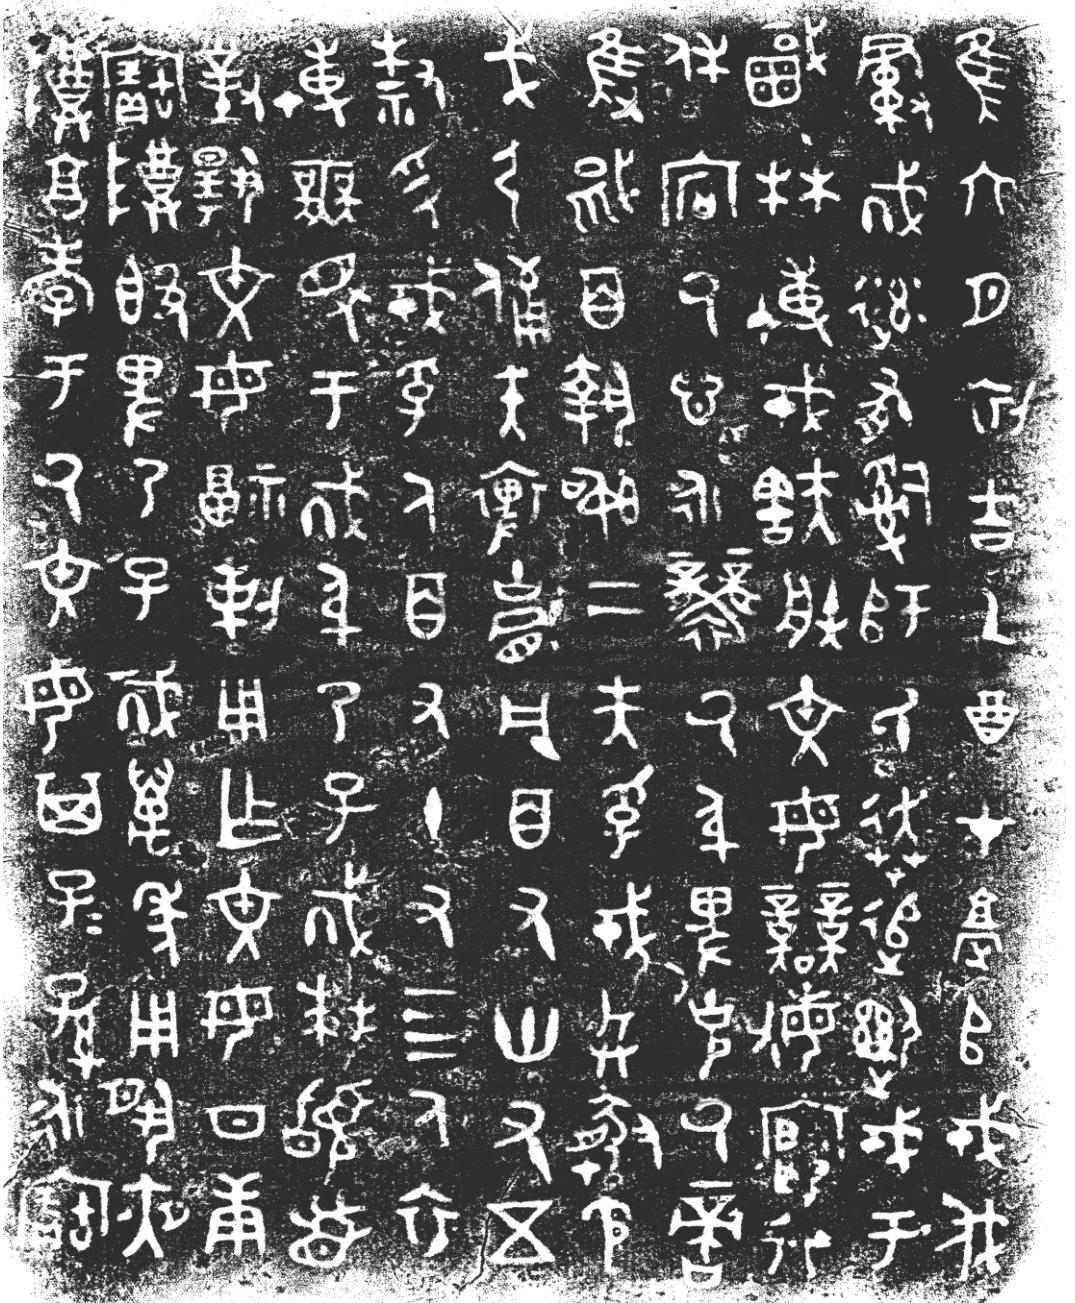 隹六月初吉乙酉才𩫏𠂤戎伐
𩫨𢦚率有𤔲師氏奔追𨒥戎于
𣛧林博戎㝬朕文母競敏𥨪行
休宕氒心永襲氒身卑克氒啻
隻馘百執訊二夫孚戎兵盾
矛戈弓備矢裨胄凡百又卅又五
㱃捋戎孚人百又十又四人衣
博無眣于𢦚身乃子𢦚拜𩒨首
對揚文母福剌用乍文母日庚
寶尊𣪘卑乃子𢦚萬年用夙夜
尊享孝于氒文母其子子孫孫永寶